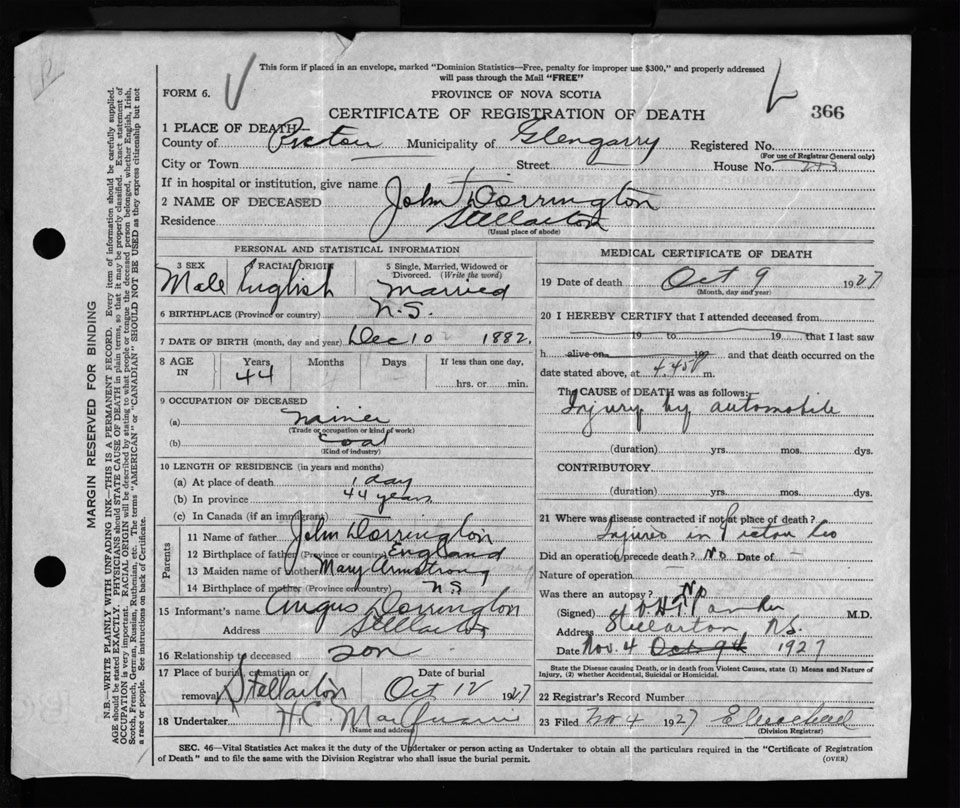 This form if placed in an envelope, marked "Dominion Statistics—Free, penalty for improper use $300," and properly addressed
will pass through the Mail "FREE"
FORM 6.
PROVINCE OF NOVA SCOTIA
CERTIFICATE OF REGISTRATION OF DEATH
366
1 PLACE OF DEATH—
County of Pictou Municipality of Glengarry Registered No.
(For use of Registrar General only)
City or Town Street House No.
If in hospital or institution, give name
2 NAME OF DECEASED John Dorrington
Residence Stellarton
(Usual place of abode)
PERSONAL AND STATISTICAL INFORMATION
3 SEX 4 RACIAL ORIGIN 5 Single, Married, Widowed or Divorced. (Write the word)
Male English Married
6 BIRTHPLACE (Province or country) N.S.
7 DATE OF BIRTH (month, day and year) Dec 10 1882.
8 AGE IN Years Months Days If less than one day,
44 hrs. or min.
9 OCCUPATION OF DECEASED
(a) miner
(Trade or occupation or kind of work)
(b) Coal
(Kind of industry)
10 LENGTH OF RESIDENCE (in years and months)
(a) At place of death 1 day
(b) In province 44 years
(c) In Canada (if an immigrant)
Parents
11 Name of father John Dorrington
12 Birthplace of father (Province or country) England
13 Maiden name of mother Mary Armstrong
14 Birthplace of mother N.S.
15 Informant's name Angus Dorrington
Address Stellarton
16 Relationship to deceased son
17 Place of burial, cremation or removal Stellarton Date of burial Oct 12 1927
18 Undertaker H.C.
(Name and address)
MEDICAL CERTIFICATE OF DEATH
19 Date of death Oct 9 1927
(Month, day and year)
20 I HEREBY CERTIFY that I attended deceased from
19 to 19 that I last saw
h alive on 19 and that death occurred on
date stated above, at 4.45 P m.
The CAUSE OF DEATH was as follows:
Injury by automobile
(duration) yrs. mos. dys.
CONTRIBUTORY
(duration) yrs. mos. dys.
21 Where was disease contracted if not at place of death?
Injured in Pictou Co
Did an operation precede death? No Date of —
Nature of operation
Was there an autopsy? No
(Signed) M.D.
Address Stellarton N.S.
Date Nov. 4 Oct 1927
State the Disease causing Death, or in death from Violent Causes, state (1) Means and Nature of
Injury, (2) whether Accidental, Suicidal or Homicidal.
22 Registrar's Record Number
23 Filed Nov 4 1927
(Division Registrar)
SEC. 46—Vital Statistics Act makes it the duty of the Undertaker or person acting as Undertaker to obtain all the particulars required in the "Certificate of Registration
of Death" and to file the same with the Division Registrar who shall issue the burial permit. (OVER)
MARGIN RESERVED FOR BINDING
N.B.—WRITE PLAINLY WITH UNFADING INK—THIS IS A PERMANENT RECORD. Every item of information should be carefully supplied.
AGE should be stated EXACTLY. PHYSICIANS should STATE CAUSE OF DEATH in plain terms, so that it may be properly classified. Exact statement of
OCCUPATION is very important. RACIAL ORIGIN will be described by stating to what people or tongue the deceased person belonged, whether English, Irish,
Scotch, French, German, Russian, Ruthenian, etc. The terms "AMERICAN" or "CANADIAN" SHOULD NOT BE USED as they express citizenship but not
a race or people. See instructions on back of Certificate.